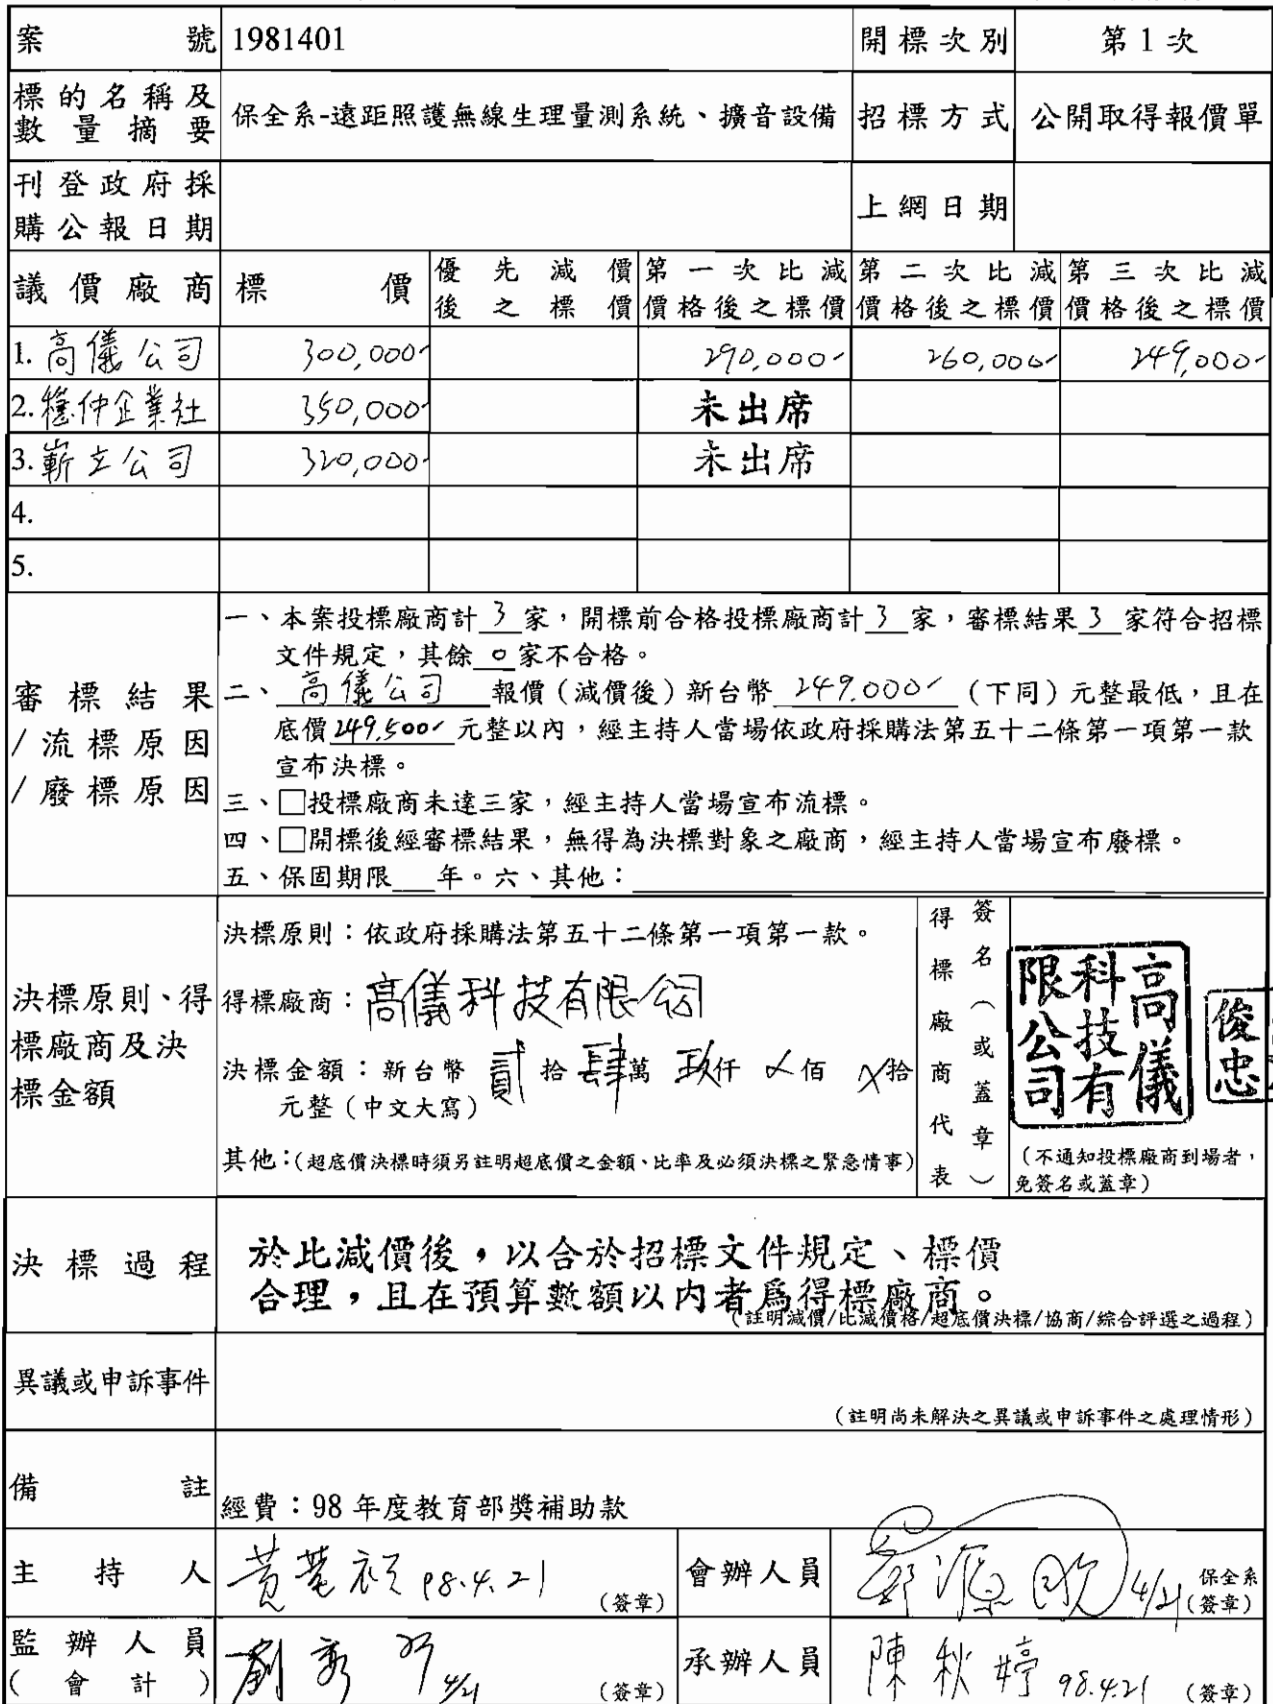 案號 1981401 開標次別 第1次
標的名稱及數量摘要 保全系-遠距照護無線生理量測系統、擴音設備 招標方式 公開取得報價單
刊登政府採購公報日期 上網日期
議價廠商 標價 優先減價後之標價 第一次比減價格後之標價 第二次比減價格後之標價 第三次比減價格後之標價
1. 高儀公司 300,000- 290,000- 260,000- 249,000-
2. 穩仲企業社 350,000- 未出席
3. 嶄立公司 320,000- 未出席
4.
5.
審標結果/流標原因/廢標原因
一、本案投標廠商計 3 家,開標前合格投標廠商計 3 家,審標結果 3 家符合招標
文件規定,其餘 0 家不合格。
二、高儀公司 報價(減價後)新台幣 249,000- (下同)元整最低,且在
底價 249,500- 元整以內,經主持人當場依政府採購法第五十二條第一項第一款
宣布決標。
三、□投標廠商未達三家,經主持人當場宣布流標。
四、□開標後經審標結果,無得為決標對象之廠商,經主持人當場宣布廢標。
五、保固期限___年。六、其他:
決標原則、得標廠商及決標金額
決標原則:依政府採購法第五十二條第一項第一款。
得標廠商:高儀科技有限公司
決標金額:新台幣 貳 拾 肆 萬 玖 仟 X 佰 X 拾
元整(中文大寫)
其他:(超底價決標時須另註明超底價之金額、比率及必須決標之緊急情事)
得標廠商代表
簽名(或蓋章)
高儀科技有限公司
俊忠
(不通知投標廠商到場者,
免簽名或蓋章)
決標過程
於比減價後,以合於招標文件規定、標價
合理,且在預算數額以內者為得標廠商。
(註明減價/比減價格/超底價決標/協商/綜合評選之過程)
異議或申訴事件
(註明尚未解決之異議或申訴事件之處理情形)
備註 經費:98年度教育部獎補助款
主持人 98.4.21 (簽章) 會辦人員 4/21 保全系(簽章)
監辦人員(會計) 4/21 (簽章) 承辦人員 陳秋婷 98.4.21 (簽章)